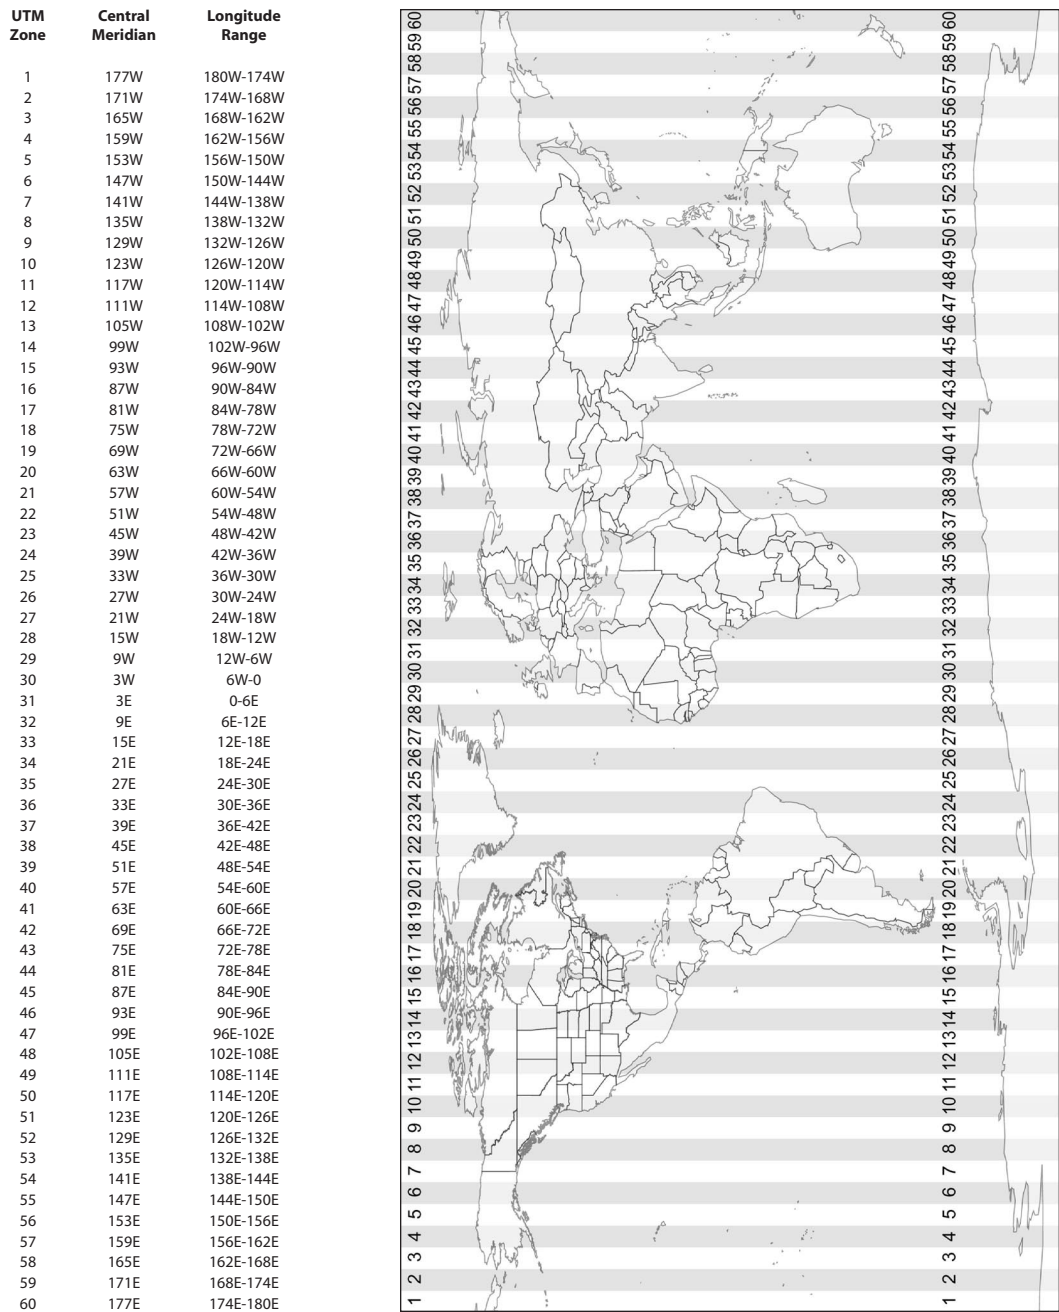 UTM Zone Central Meridian Longitude Range
1 177W 180W-174W
2 171W 174W-168W
3 165W 168W-162W
4 159W 162W-156W
5 153W 156W-150W
6 147W 150W-144W
7 141W 144W-138W
8 135W 138W-132W
9 129W 132W-126W
10 123W 126W-120W
11 117W 120W-114W
12 111W 114W-108W
13 105W 108W-102W
14 99W 102W-96W
15 93W 96W-90W
16 87W 90W-84W
17 81W 84W-78W
18 75W 78W-72W
19 69W 72W-66W
20 63W 66W-60W
21 57W 60W-54W
22 51W 54W-48W
23 45W 48W-42W
24 39W 42W-36W
25 33W 36W-30W
26 27W 30W-24W
27 21W 24W-18W
28 15W 18W-12W
29 9W 12W-6W
30 3W 6W-0
31 3E 0-6E
32 9E 6E-12E
33 15E 12E-18E
34 21E 18E-24E
35 27E 24E-30E
36 33E 30E-36E
37 39E 36E-42E
38 45E 42E-48E
39 51E 48E-54E
40 57E 54E-60E
41 63E 60E-66E
42 69E 66E-72E
43 75E 72E-78E
44 81E 78E-84E
45 87E 84E-90E
46 93E 90E-96E
47 99E 96E-102E
48 105E 102E-108E
49 111E 108E-114E
50 117E 114E-120E
51 123E 120E-126E
52 129E 126E-132E
53 135E 132E-138E
54 141E 138E-144E
55 147E 144E-150E
56 153E 150E-156E
57 159E 156E-162E
58 165E 162E-168E
59 171E 168E-174E
60 177E 174E-180E
1 2 3 4 5 6 7 8 9 10 11 12 13 14 15 16 17 18 19 20 21 22 23 24 25 26 27 28 29 30 31 32 33 34 35 36 37 38 39 40 41 42 43 44 45 46 47 48 49 50 51 52 53 54 55 56 57 58 59 60
1 2 3 4 5 6 7 8 9 10 11 12 13 14 15 16 17 18 19 20 21 22 23 24 25 26 27 28 29 30 31 32 33 34 35 36 37 38 39 40 41 42 43 44 45 46 47 48 49 50 51 52 53 54 55 56 57 58 59 60